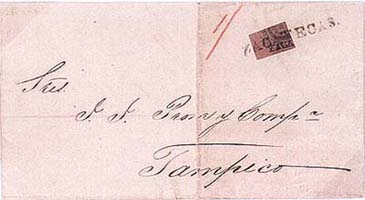 ZACATECAS.
Sres.
J. J. Prom y Compa
Tampico